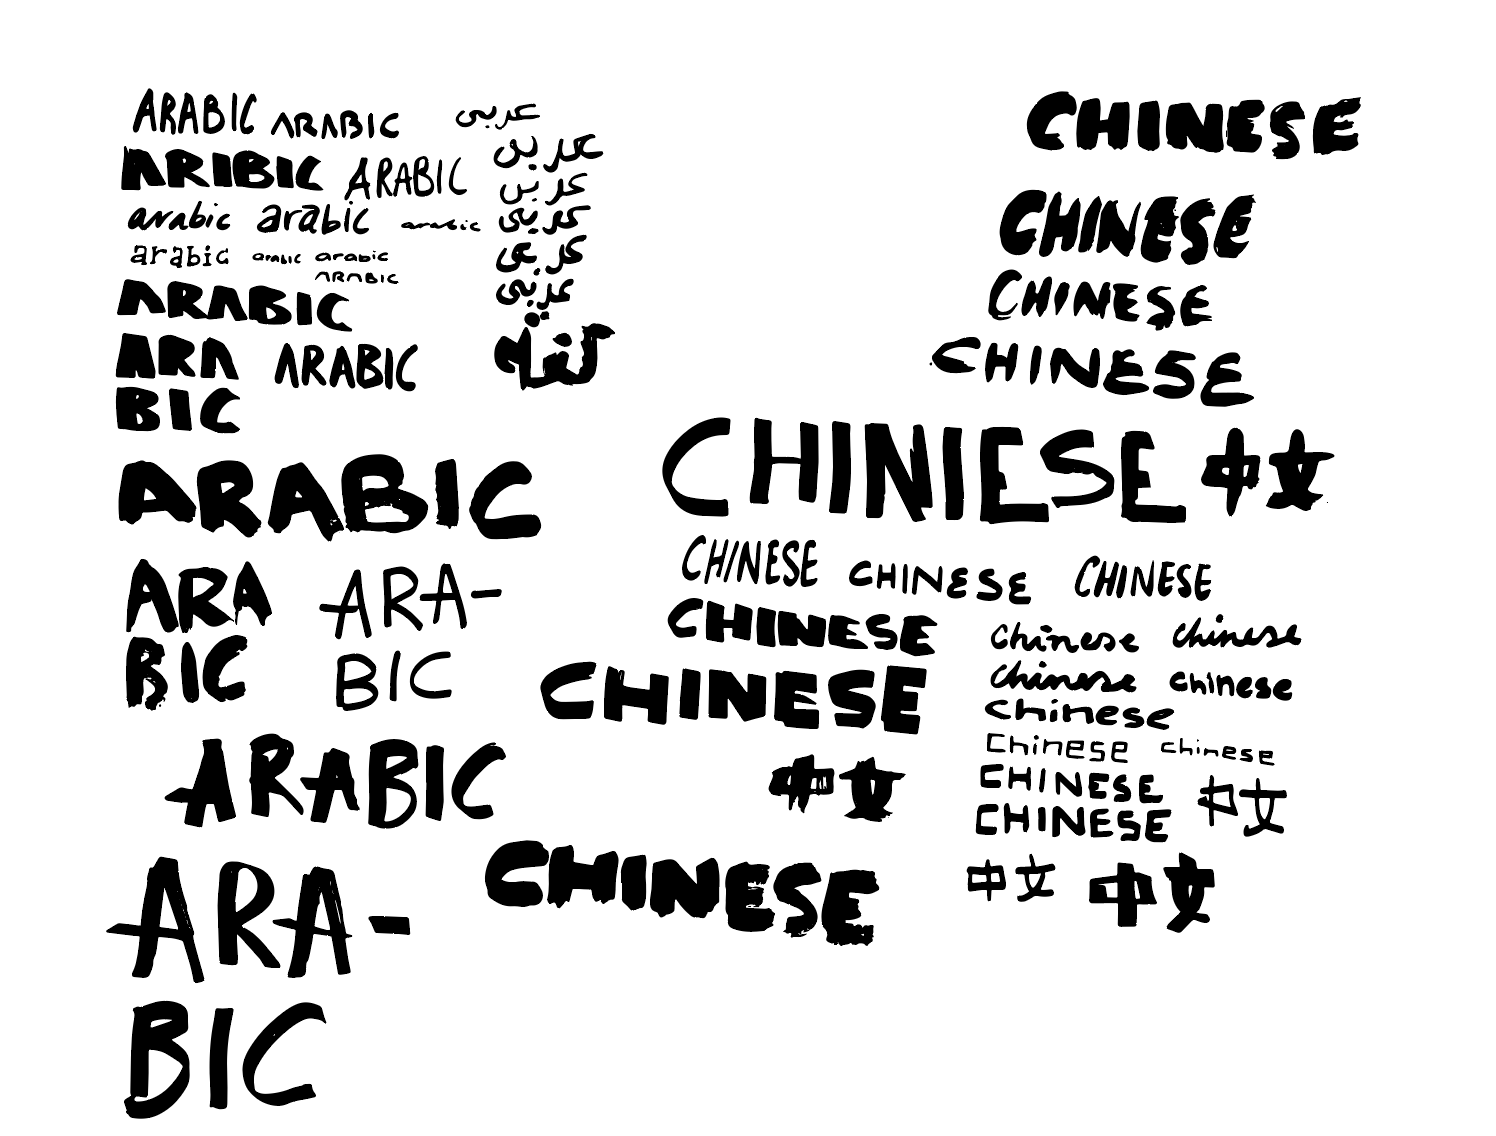 ARABIC ARABIC عربي
ARIBIC ARABIC عربي
arabic arabic arabic عربي
arabic arabic arabic عربي
ARABIC
ARABIC عربي
عربي
ARA
BIC
ARABIC
ARABIC
ARA
BIC
ARA-
BIC
ARABIC
ARA-
BIC
CHINESE
CHINESE
CHINESE
CHINESE
CHINIESE 中文
CHINESE CHINESE CHINESE
CHINESE
CHINESE
中文
CHINESE
chinese chinese
chinese chinese
chinese
Chinese chinese
CHINESE
CHINESE 中文
中文 中文